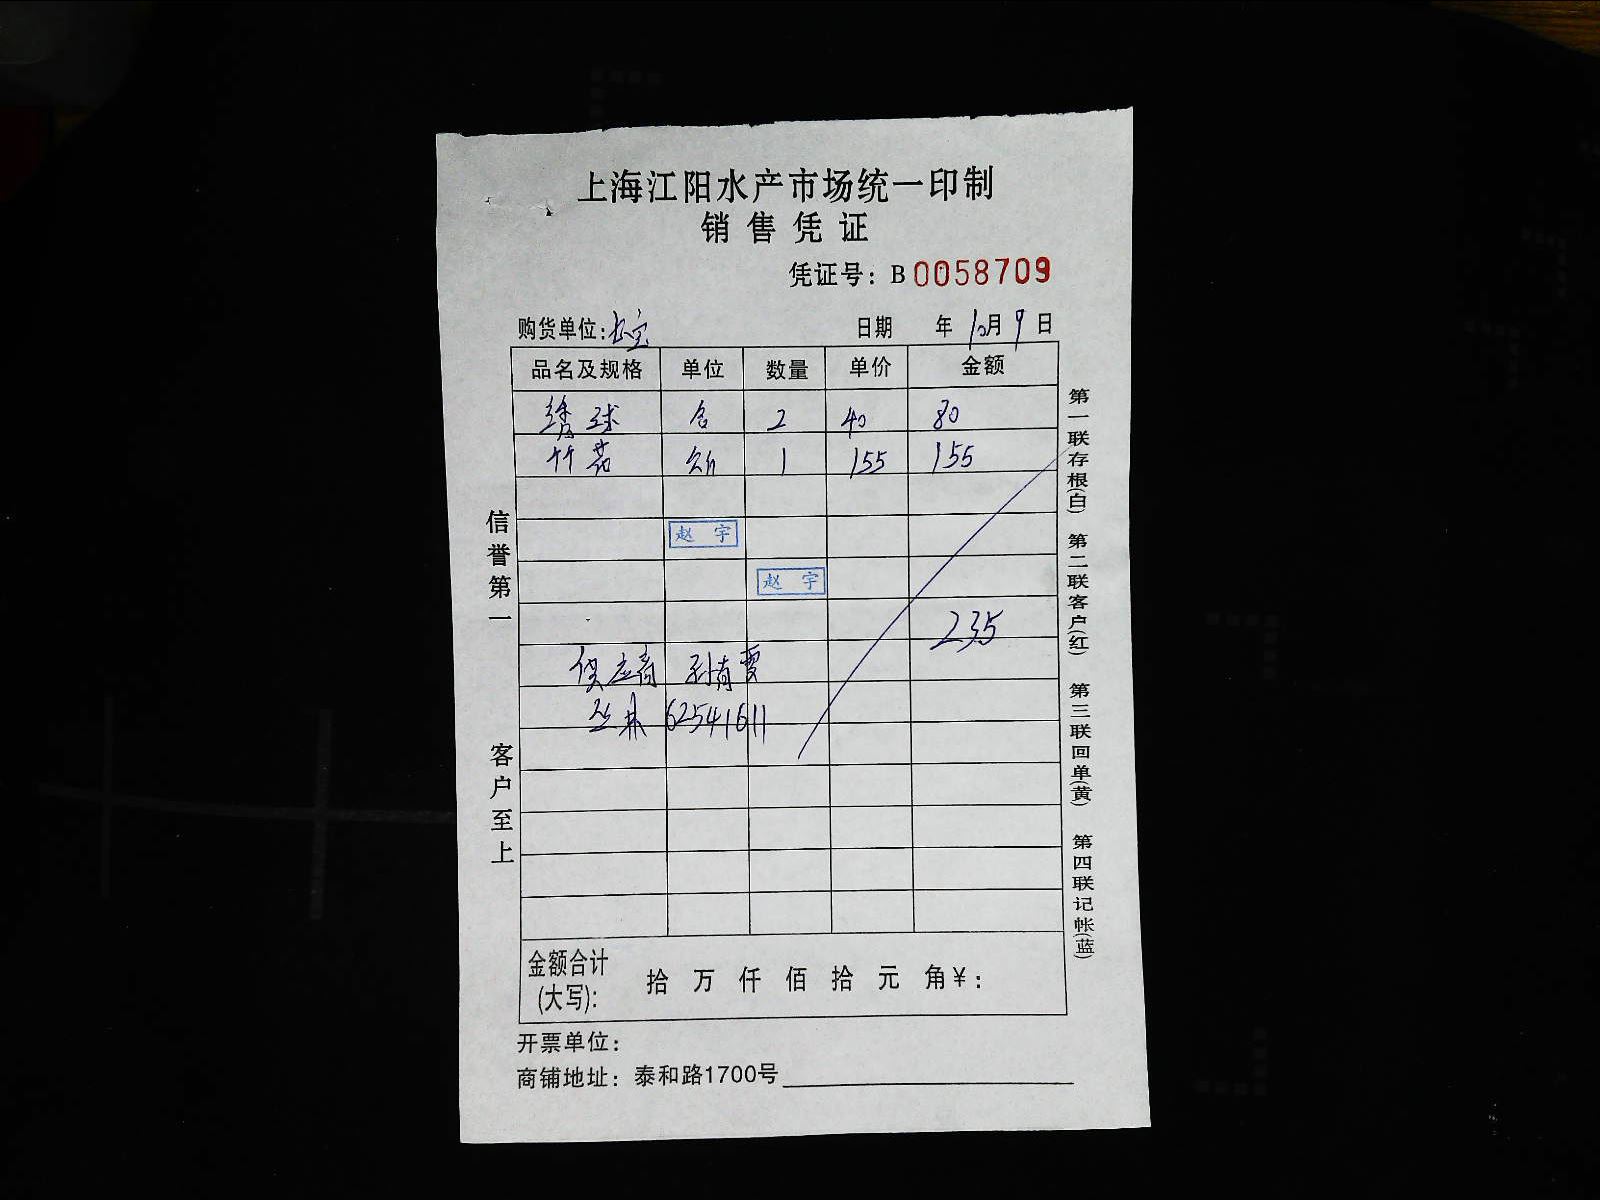 上海江阳水产市场统一印制
销售凭证
凭证号：B 0058709
购货单位: 长宝 日期 年 10月 9 日
品名及规格 单位 数量 单价 金额
绣球 2 40 80
竹荪 1 155 155
赵宇
赵宇
235
供应商 孙育霞
丛林 62541611
金额合计(大写): 拾 万 仟 佰 拾 元 角 ¥:
开票单位:
商铺地址: 泰和路1700号
信誉第一
客户至上
第一联存根(白) 第二联客户(红) 第三联回单(黄) 第四联记帐(蓝)